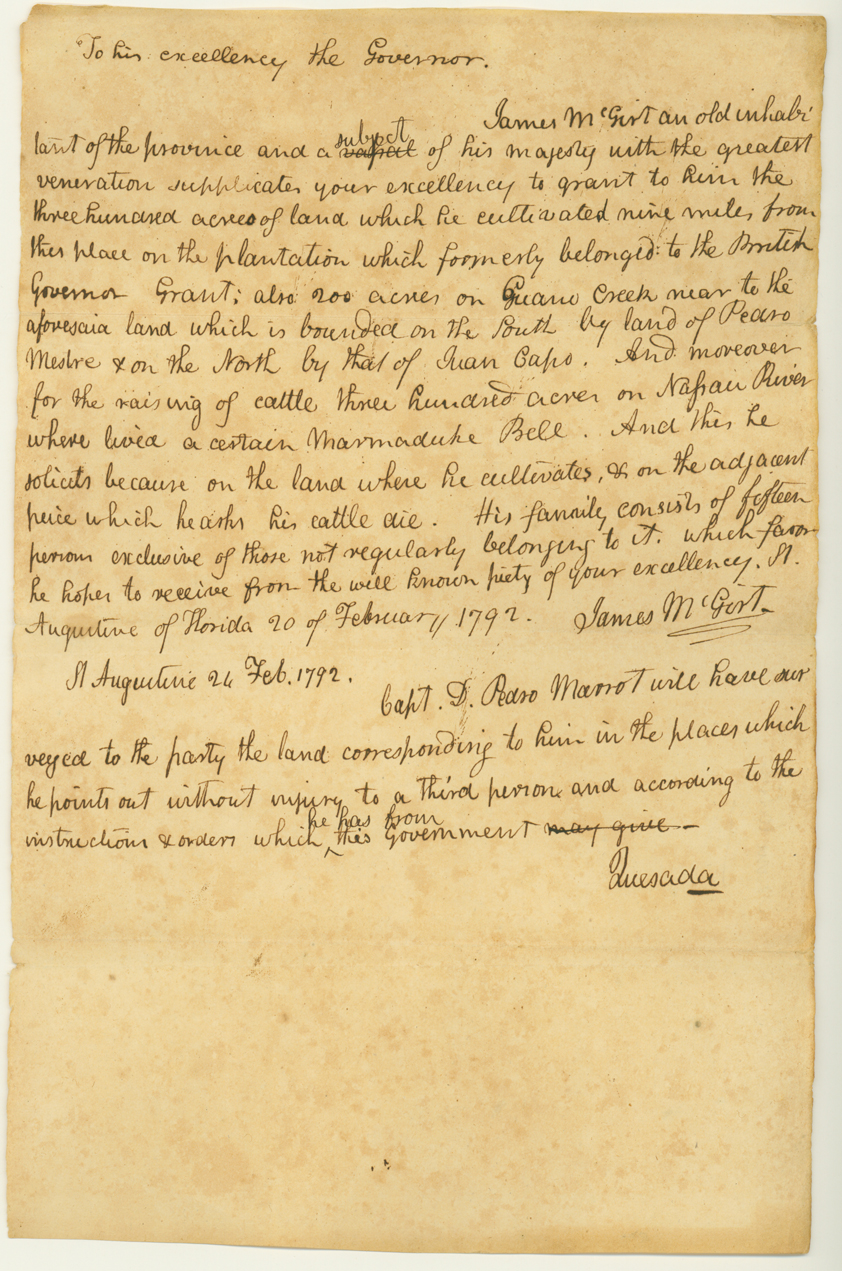 To his excellency the Governor.
James McGirt an old inhabi
tant of the province and a subject vassal of his majesty with the greatest
veneration supplicates your excellency to grant to him the
three hundred acres of land which he cultivated nine miles from
this place on the plantation which formerly belonged to the British
Governor Grant; also 200 acres on Guano Creek near to the
aforesaid land which is bounded on the South by land of Pedro
Mestre & on the North by that of Juan Capo. And moreover
for the raising of cattle three hundred acres on Nassau River
where lived a certain Marmaduke Bell. And this he
solicits because on the land where he cultivates, & on the adjacent
peice which he asks his cattle die. His family consists of fifteen
persons exclusive of those not regularly belonging to it. which favor
he hopes to receive from the well known piety of your excellency. St.
Augustine of Florida 20 of February 1792. James McGirt
St Augustine 24 Feb. 1792.
Capt. D. Pedro Marrot will have sur
veyed to the party the land corresponding to him in the places which
he points out without injury to a third person and according to the
he has from
instructions & orders which this Government may give
Quesada